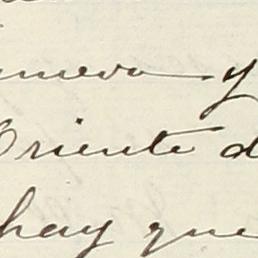 nueva y
Oriente d
hay que